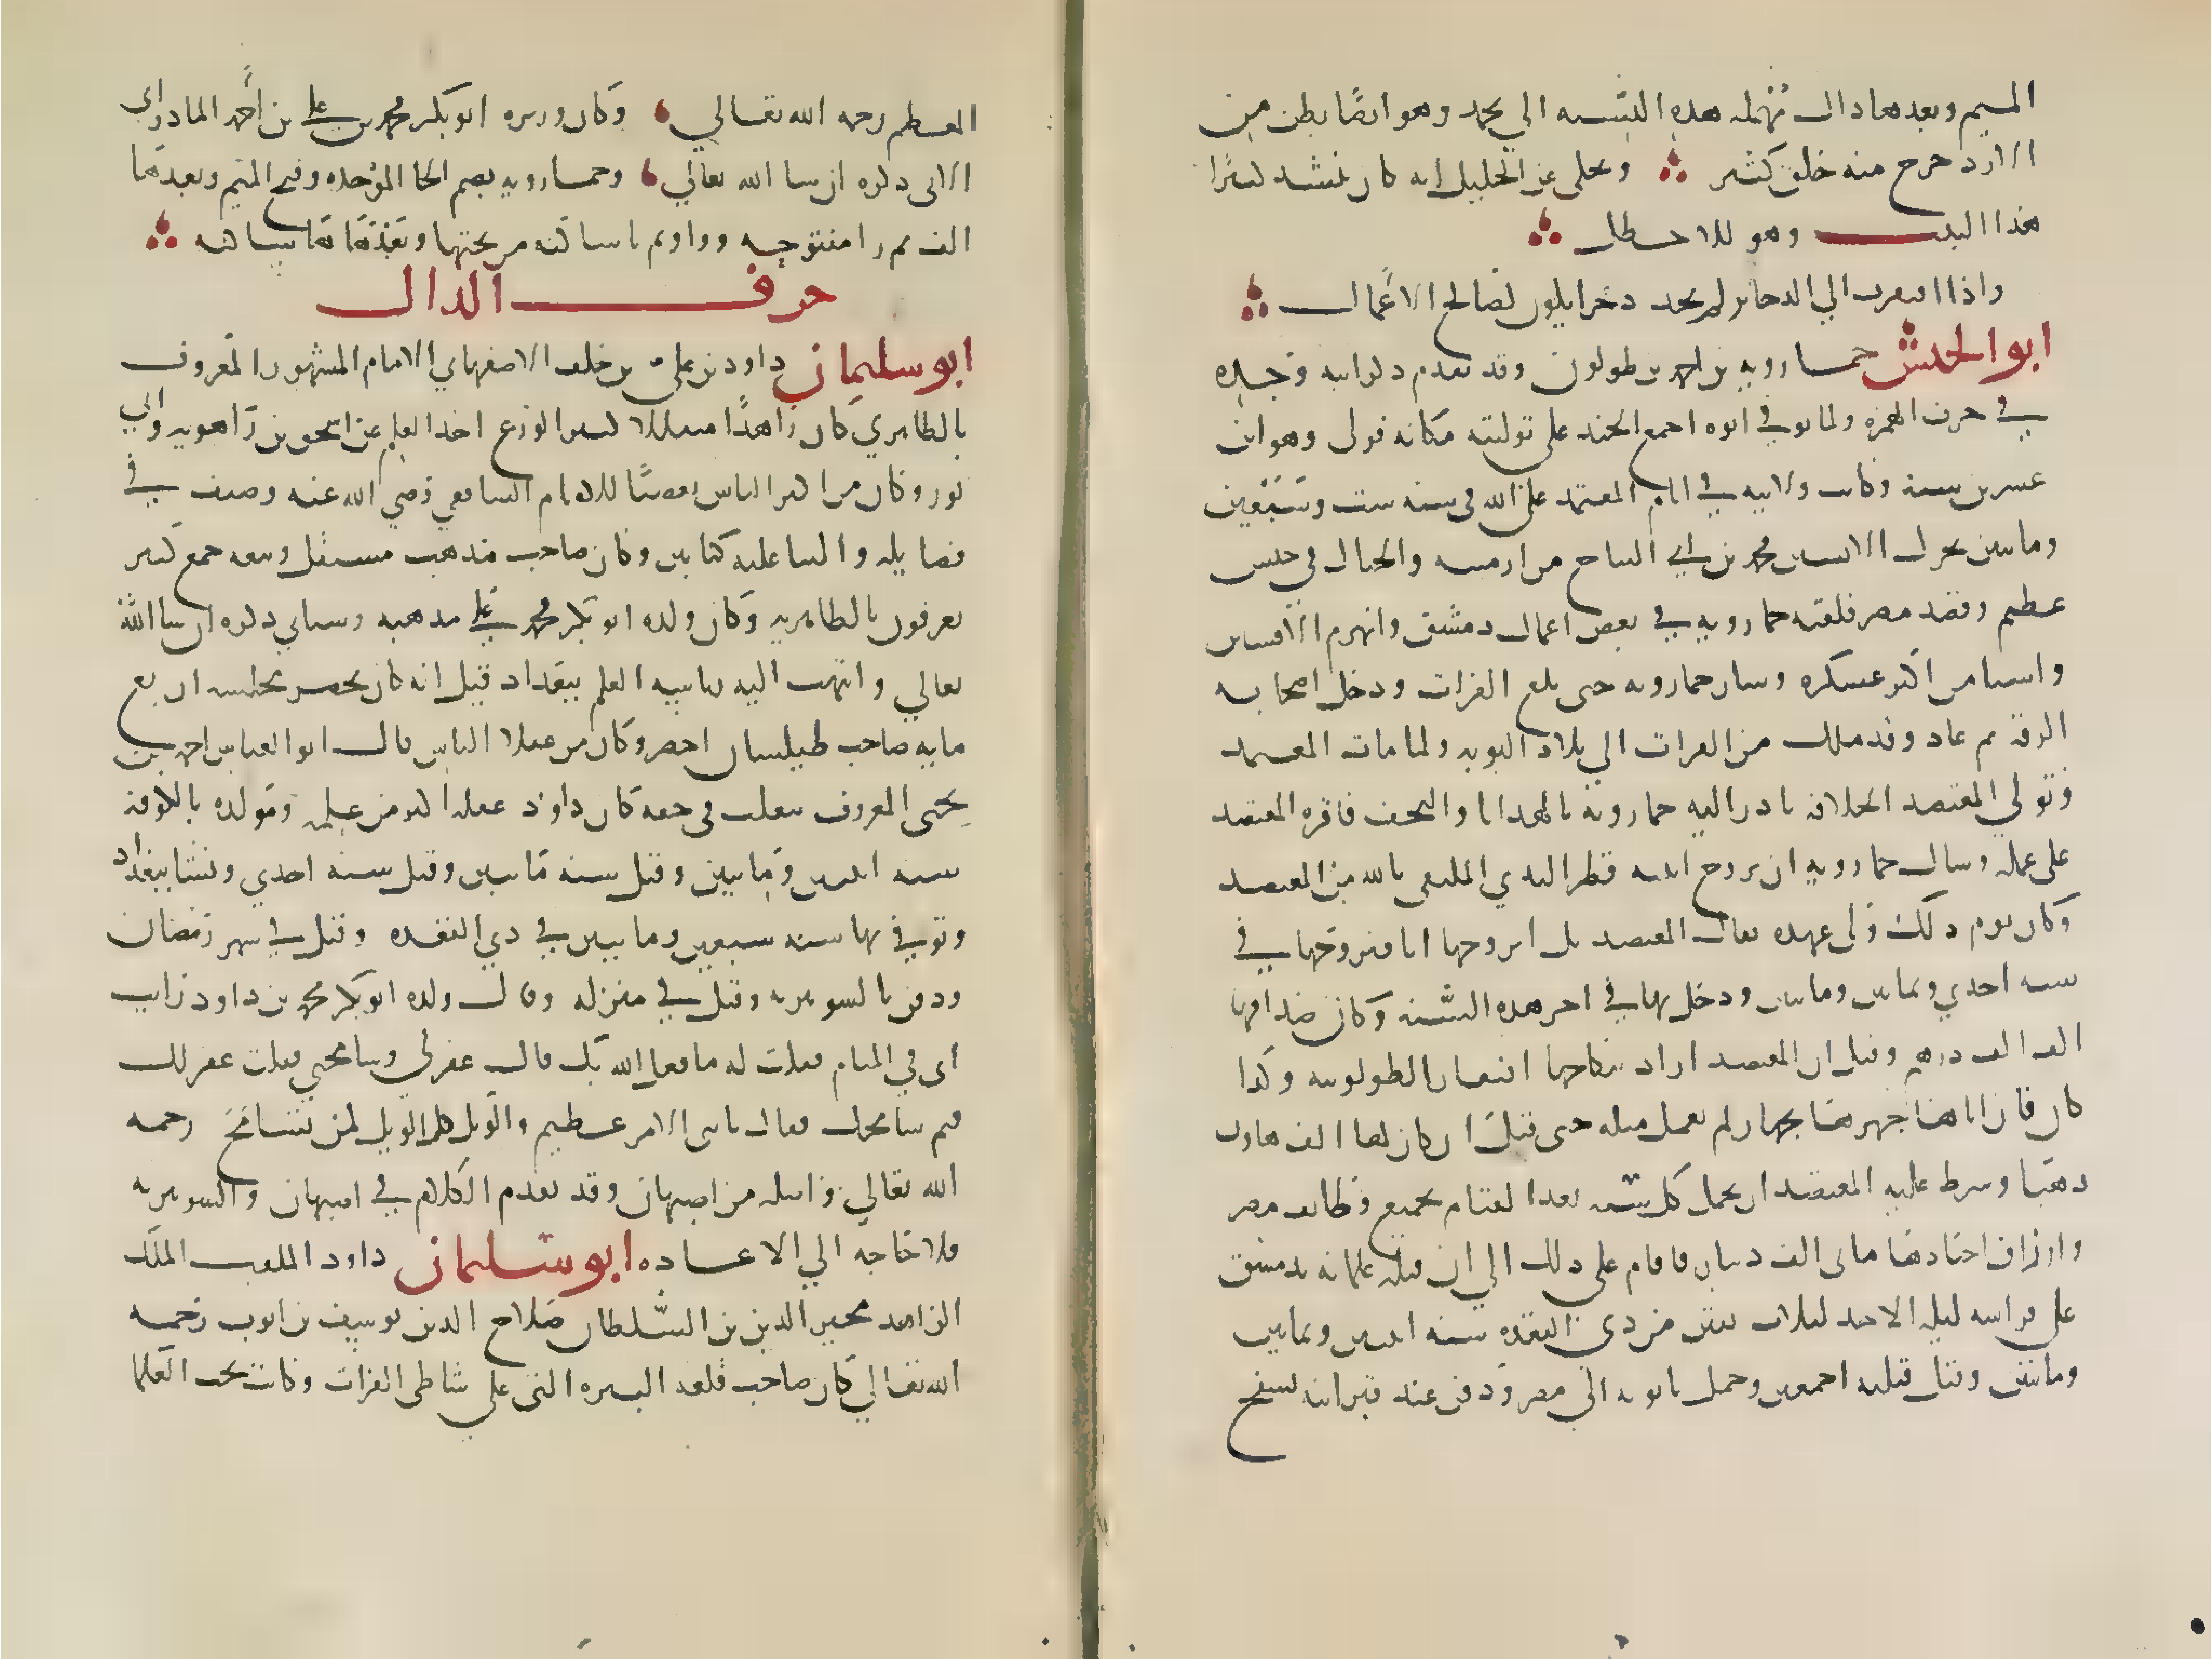 الميم وبعدها دال مهملة هذه النسبة الي يحمد وهو ايضا بطن من
الازد خرج منه خلق كثير وحكي عن الخليل انه كان ينشد كثيرا
هذا البيت وهو للاخطل
واذا افتقرت الي الدخاير لم تجد دخرا يكون لصالح الاعمال
ابو الجيش خمارويه بن احمد بن طولون وقد تقدم ذكر ابيه وجده
في حرف الهمزة ولما توفي ابوه اجمع الجند علي توليته مكانه فولي وهو ابن
عشرين سنة وكانت ولايته في ايام المعتمد علي الله في سنة ست وسبعين
ومايتين تحرك الافشين محمد بن ابي الساج من ارمينية والجبال في جيش
عظيم وقصد مصر فلقيه خمارويه في بعض اعمال دمشق وانهزم الافشين
واستامن اكثر عسكره وسار خمارويه حتي بلغ الفرات ودخل اصحابه
الرقة ثم عاد وقد ملك من الفرات الي بلاد النوبة ولما مات المعتمد
وتولي المعتضد الخلافة بادر اليه خمارويه بالهدايا والتحف فاقره المعتضد
علي عمله وسال خمارويه ان يزوج ابنته قطر الندي للمكتفي بالله بن المعتضد
وكان يوم ذلك ولي عهده فقال المعتضد بل اتزوجها انا فتزوجها في
سنة احدي وثمانين ومايتين ودخل بها في اخر هذه السنة وكان صداقها
الف الف درهم وقيل ان المعتضد اراد بنكاحها افتقار الطولونية وكذا
كان فان اباها جهزها بجهاز لم يعمل مثله حتي قيل ان كان لها الف هاون
ذهبا وشرط عليه المعتضد ان يحمل كل سنة بعد القيام بجميع وظايف مصر
وارزاق اجنادها مايتي الف دينار فاقام علي ذلك الي ان قتله غلمانه بدمشق
علي فراشه ليلة الاحد لثلاث بقين من ذي القعدة سنة اثنتين وثمانين
ومايتين وقتل قتلته اجمعين وحمل تابوته الي مصر ودفن عند قبر ابيه بسفح
المقطم رحمه الله تعالي وكان وزيره ابو بكر محمد بن علي بن احمد المادراي
الاتي ذكره ان شا الله تعالي وخمارويه بضم الخا الموحدة وفتح الميم وبعدها
الف ثم را مفتوحة وواو ثم يا ساكنة من تحتها وبعدها ها ساكنة
حرف الدال
ابو سليمان داود بن علي بن خلف الاصفهاني الامام المشهور المعروف
بالظاهري كان زاهدا متقللا كثير الورع اخذ العلم عن اسحق بن راهويه وابي
ثور وكان من اكثر الناس تعصبا للامام الشافعي رضي الله عنه وصنف في
فضايله والثنا عليه كتابين وكان صاحب مذهب مستقل وتبعه جمع كثير
يعرفون بالظاهرية وكان ولده ابو بكر محمد علي مذهبه وسياتي ذكره ان شا الله
تعالي وانتهت اليه رياسة العلم ببغداد قيل انه كان يحضر مجلسه اربع
ماية صاحب طيلسان اخضر وكان من عقلا الناس قال ابو العباس احمد بن
يحيي المعروف بثعلب في حقه كان داود عقله اكثر من علمه ومولده بالكوفة
سنة اثنتين ومايتين وقيل سنة مايتين وقيل سنة احدي ونشا ببغداد
وتوفي بها سنة سبعين ومايتين في ذي القعدة وقيل في شهر رمضان
ودفن بالشونيزية وقيل في منزله وقال ولده ابو بكر محمد بن داود رايت
ابي في المنام فقلت له ما فعل الله بك قال غفر لي وسامحني فقلت غفر لك
فبم سامحك فقال يا بني الامر عظيم والويل كل الويل لمن يسامح رحمه
الله تعالي واصله من اصبهان وقد تقدم الكلام في اصبهان والشونيزية
فلا حاجة الي الاعادة ابو سليمان داود الملقب الملك
الزاهد مجير الدين بن السلطان صلاح الدين يوسف بن ايوب رحمه
الله تعالي كان صاحب قلعة البيرة التي علي شاطي الفرات وكان يحب العلما